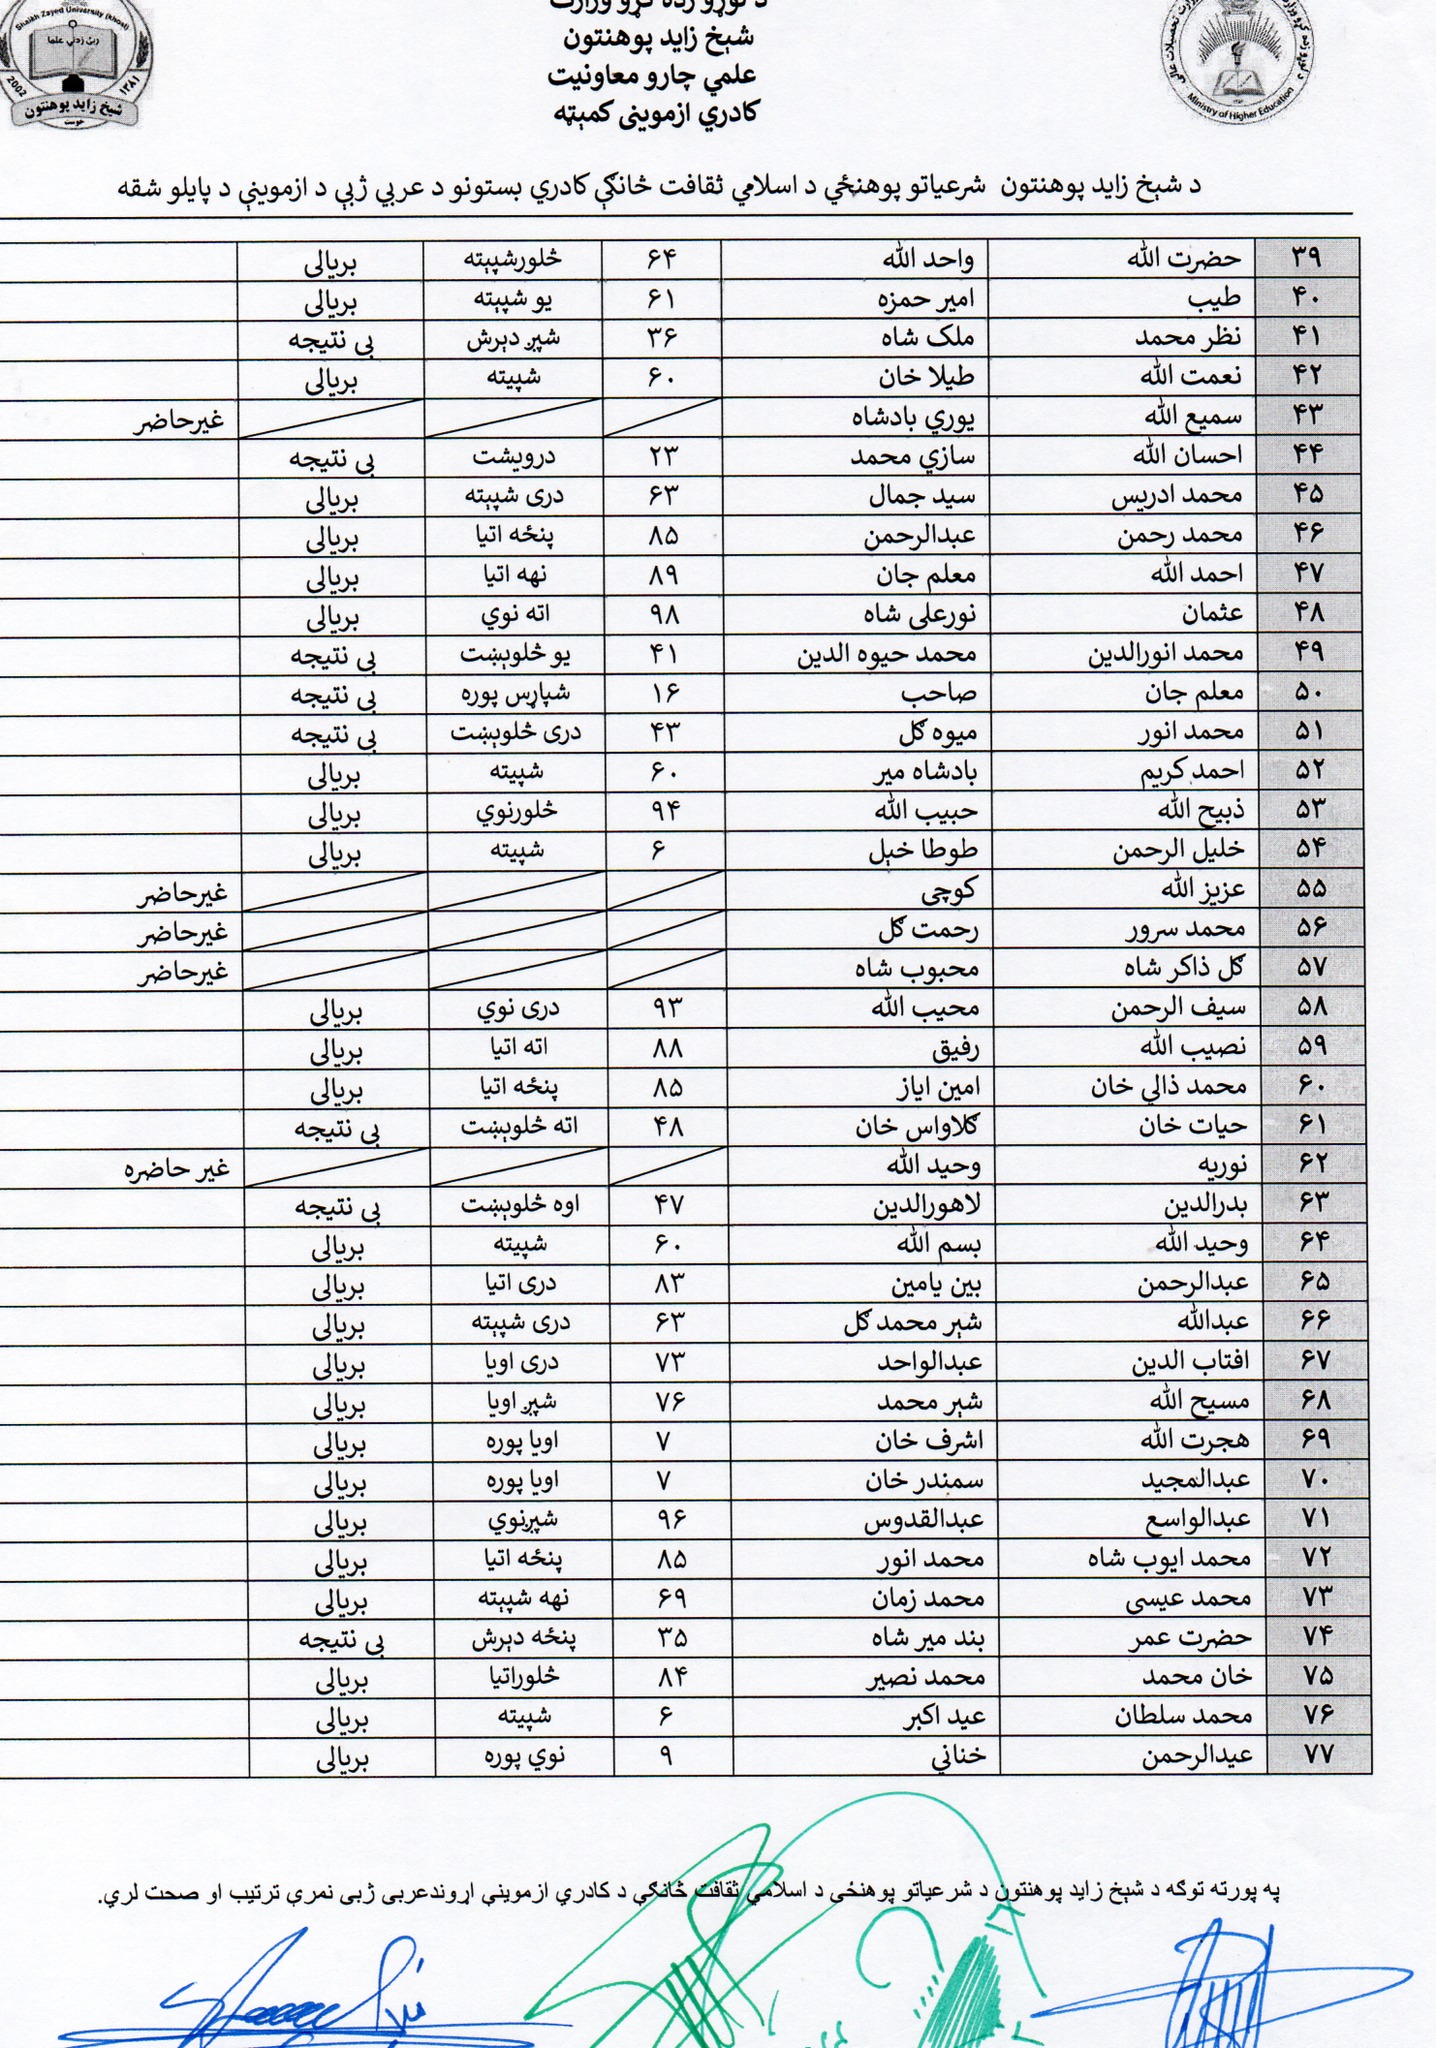 Shaikh Zayed University (khost)
2002
۱۳۸۱
شېخ زايد پوهنتون
خوست
Ministry of Higher Education
شېخ زايد پوهنتون
علمي چارو معاونيت
کادري ازمويني کمېټه
د شېخ زايد پوهنتون شرعياتو پوهنځي د اسلامي ثقافت څانګې کادري بستونو د عربي ژبې د ازموينې د پايلو شقه
۳۹ حضرت الله واحد الله ۶۴ څلورشپېته بريالی
۴۰ طيب امير حمزه ۶۱ يو شپېته بريالی
۴۱ نظر محمد ملک شاه ۳۶ شپږ دېرش بی نتيجه
۴۲ نعمت الله طيلا خان ۶۰ شپيته بريالی
۴۳ سميع الله يوري بادشاه غيرحاضر
۴۴ احسان الله سازي محمد ۲۳ درويشت بی نتيجه
۴۵ محمد ادريس سيد جمال ۶۳ دری شپېته بريالی
۴۶ محمد رحمن عبدالرحمن ۸۵ پنځه اتيا بريالی
۴۷ احمد الله معلم جان ۸۹ نهه اتيا بريالی
۴۸ عثمان نورعلی شاه ۹۸ اته نوي بريالی
۴۹ محمد انورالدين محمد حيوه الدين ۴۱ يو څلوېښت بی نتيجه
۵۰ معلم جان صاحب ۱۶ شپاړس پوره بی نتيجه
۵۱ محمد انور ميوه ګل ۴۳ دری څلوېښت بی نتيجه
۵۲ احمد کريم بادشاه مير ۶۰ شپيته بريالی
۵۳ ذبيح الله حبيب الله ۹۴ څلورنوي بريالی
۵۴ خليل الرحمن طوطا خېل ۶ شپيته بريالی
۵۵ عزيز الله کوچی غيرحاضر
۵۶ محمد سرور رحمت ګل غيرحاضر
۵۷ ګل ذاکر شاه محبوب شاه غيرحاضر
۵۸ سيف الرحمن محيب الله ۹۳ دری نوي بريالی
۵۹ نصيب الله رفيق ۸۸ اته اتيا بريالی
۶۰ محمد ذالي خان امين اياز ۸۵ پنځه اتيا بريالی
۶۱ حيات خان ګلاواس خان ۴۸ اته څلوېښت بی نتيجه
۶۲ نوريه وحيد الله غير حاضره
۶۳ بدرالدين لاهورالدين ۴۷ اوه څلوېښت بی نتيجه
۶۴ وحيد الله بسم الله ۶۰ شپيته بريالی
۶۵ عبدالرحمن بين يامين ۸۳ دری اتيا بريالی
۶۶ عبدالله شېر محمد ګل ۶۳ دری شپېته بريالی
۶۷ افتاب الدين عبدالواحد ۷۳ دری اويا بريالی
۶۸ مسيح الله شېر محمد ۷۶ شپږ اويا بريالی
۶۹ هجرت الله اشرف خان ۷ اويا پوره بريالی
۷۰ عبدالمجيد سمندر خان ۷ اويا پوره بريالی
۷۱ عبدالواسع عبدالقدوس ۹۶ شپږنوي بريالی
۷۲ محمد ايوب شاه محمد انور ۸۵ پنځه اتيا بريالی
۷۳ محمد عيسی محمد زمان ۶۹ نهه شپېته بريالی
۷۴ حضرت عمر بند مير شاه ۳۵ پنځه دېرش بی نتيجه
۷۵ خان محمد محمد نصير ۸۴ څلوراتيا بريالی
۷۶ محمد سلطان عيد اکبر ۶ شپيته بريالی
۷۷ عيدالرحمن خناني ۹ نوي پوره بريالی
په پورته توګه د شېخ زايد پوهنتون د شرعياتو پوهنځی د اسلامي ثقافت څانګې د کادري ازمويني اړوندعربی ژبی نمرې ترتيب او صحت لري.